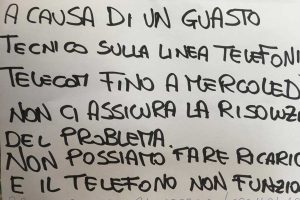 A CAUSA DI UN GUASTO
TECNICO SULLA LINEA TELEFONI
TELECOM FINO A MERCOLED
NON CI ASSICURA LA RISOLUZI
DEL PROBLEMA.
NON POSSIAMO FARE RICARIC
E IL TELEFONO NON FUNZIO